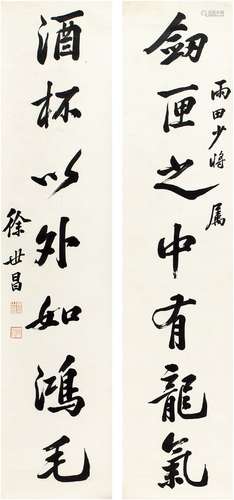 雨田少將屬
劒匣之中有龍氣
酒杯以外如鴻毛
徐世昌